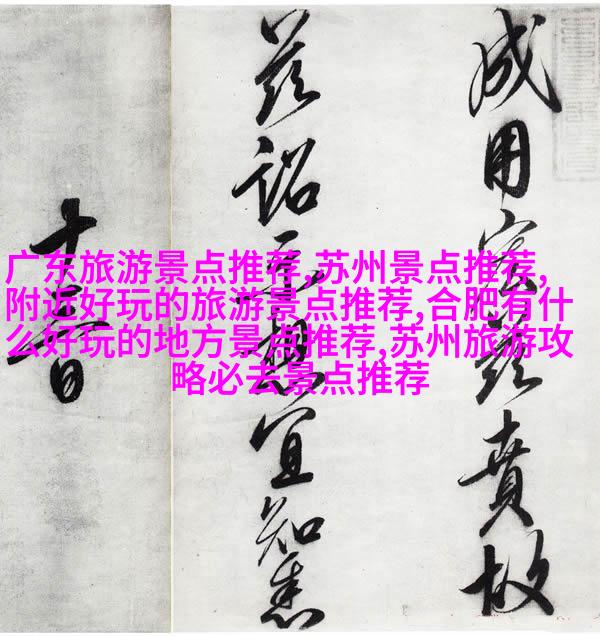 广东旅游景点推荐,苏州景点推荐,
附近好玩的旅游景点推荐,合肥有什
么好玩的地方景点推荐,苏州旅游攻
略必去景点推荐
成用茲賁故
茲詔示想宜知悉
十日